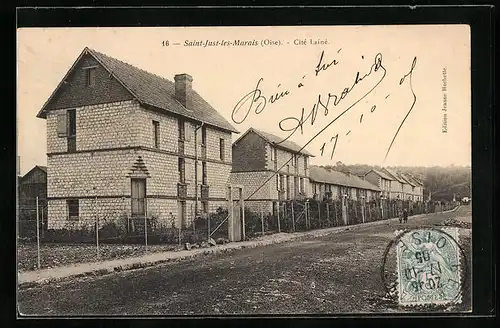 16 — Saint-Just-les-Marais (Oise). - Cité Lainé.
Bien à toi
17-10-05
Edition Jeanne Hachette.
OISE
17-10
05